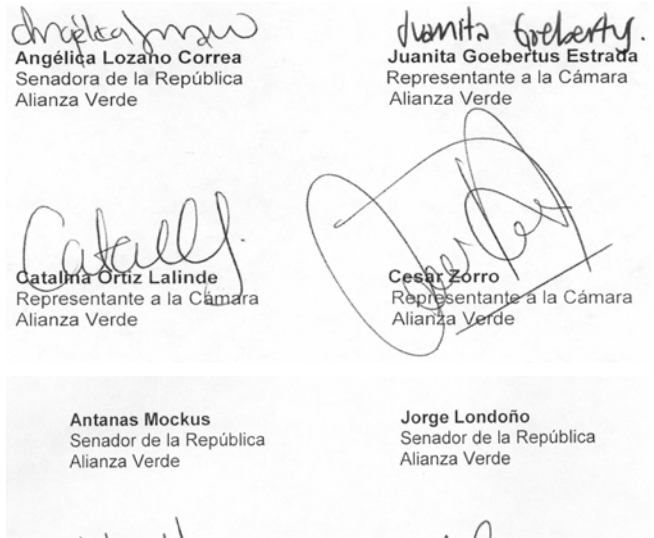 Angélica Lozano
Juanita Goebertus.
Angélica Lozano Correa
Senadora de la República
Alianza Verde
Juanita Goebertus Estrada
Representante a la Cámara
Alianza Verde
Catalina Ortiz Lalinde
Representante a la Cámara
Alianza Verde
Cesar Zorro
Representante a la Cámara
Alianza Verde
Antanas Mockus
Senador de la República
Alianza Verde
Jorge Londoño
Senador de la República
Alianza Verde